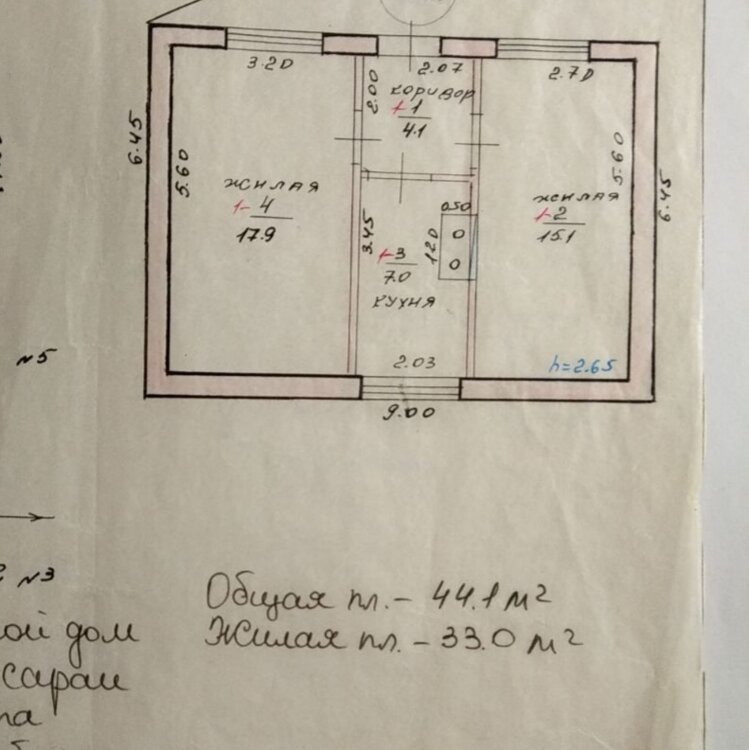 3.20
2.07
2.70
2.00
коридор
1
4.1
6.45
5.60
5.60
6.45
жилая
1-4
17.9
жилая
1-2
15.1
0.50
1.20
3.45
3
7.0
кухня
2.03
h=2.65
9.00
№5
№3
Общая пл.- 44.1 м²
Жилая пл. - 33.0 м²
ой дом
сараи